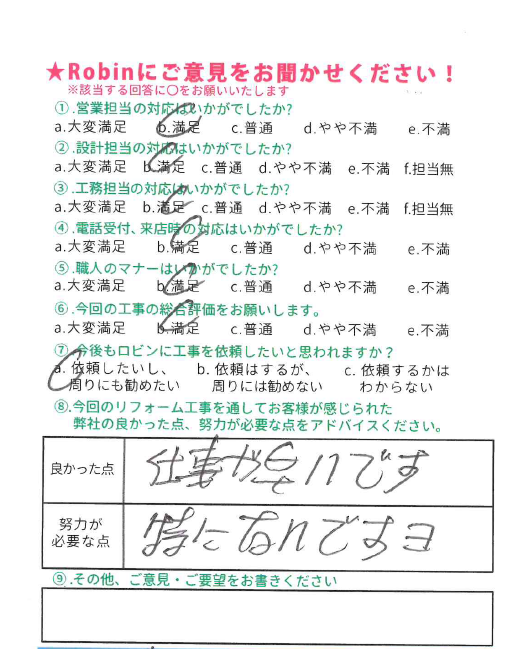 ★Robinにご意見をお聞かせください！
※該当する回答に〇をお願いいたします
①.営業担当の対応はいかがでしたか?
a.大変満足 b.満足 c.普通 d.やや不満 e.不満
②.設計担当の対応はいかがでしたか?
a.大変満足 b.満足 c.普通 d.やや不満 e.不満 f.担当無
③.工務担当の対応はいかがでしたか?
a.大変満足 b.満足 c.普通 d.やや不満 e.不満 f.担当無
④.電話受付、来店時の対応はいかがでしたか?
a.大変満足 b.満足 c.普通 d.やや不満 e.不満
⑤.職人のマナーはいかがでしたか?
a.大変満足 b.満足 c.普通 d.やや不満 e.不満
⑥.今回の工事の総合評価をお願いします。
a.大変満足 b.満足 c.普通 d.やや不満 e.不満
⑦.今後もロビンに工事を依頼したいと思われますか？
a. 依頼したいし、 b. 依頼はするが、 c. 依頼するかは
周りにも勧めたい 周りには勧めない わからない
⑧.今回のリフォーム工事を通してお客様が感じられた
弊社の良かった点、努力が必要な点をアドバイスください。
良かった点 仕事が早いです
努力が
必要な点 特になんですヨ
⑨.その他、ご意見・ご要望をお書きください